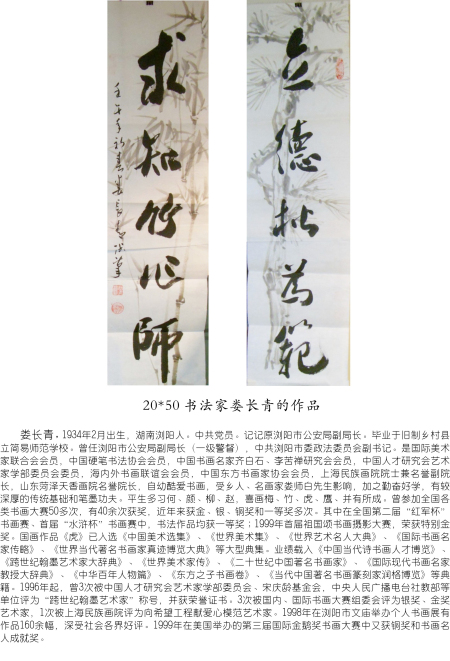 立德松为範
求知竹作師
20*50 书法家娄长青的作品
娄长青,1934年2月出生,湖南浏阳人。中共党员。记记原浏阳市公安局副局长。毕业于旧制乡村县
立简易师范学校。曾任浏阳市公安局副局长(一级警督),中共浏阳市委政法委员会副书记。是国际美术
家联合会会员,中国硬笔书法协会会员,中国书画名家齐白石、李苦禅研究会会员,中国人才研究会艺术
家学部委员会委员,海内外书画联谊会会员,中国东方书画家协会会员,上海民族画院院士兼名誉副院
长,山东菏泽天香画院名誉院长,自幼酷爱书画,受乡人、名画家娄师白先生影响,加之勤奋好学,有较
深厚的传统基础和笔墨功夫。平生多习何、颜、柳、赵,喜画梅、竹、虎、鹰、并有所成。曾参加全国各
类书画大赛50多次,有40余次获奖,近年来获金、银、铜奖和一等奖多次。其中在全国第二届“红军杯”
书画赛、首届“水浒杯”书画赛中,书法作品均获一等奖;1999年首届祖国颂书画摄影大赛,荣获特别金
奖。国画作品《虎》已人选《中国美术选集》、《世界美术集》、《世界艺术名人大典》、《国际书画名
家传略》、《世界当代著名书画家真迹博览大典》等大型典集。业绩载入《中国当代诗书画人才博览》、
《跨世纪翰墨艺术家大辞典》、《世界美术家传》、《二十世纪中国著名书画家》、《国际现代书画名家
教授大辞典》、《中华百年人物篇》、《东方之子书画卷》、《当代中国著名书画篆刻家润格博览》等典
籍。1996年起,曾3次被中国人才研究会艺术家学部委员会、宋庆龄基金会,中央人民广播电台社教部等
单位评为“跨世纪翰墨艺术家”称号,并获荣誉证书。3次被国内、国际书画大赛组委会评为银奖、金奖
艺术家,1次被上海民族画院评为向希望工程献爱心模范艺术家。1998年在浏阳市文庙举办个人书画展有
作品160余幅,深受社会各界好评。1999年在美国举办的第三届国际金鹅奖书画大赛中又获铜奖和书画名
人成就奖。